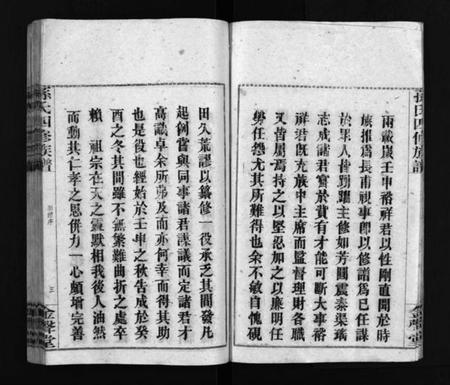 孫氏四修族譜
兩載歲壬申裕祥君以性剛直聞於時
族推爲長甫視事卽以修譜爲己任謀
於眾人皆踴躍主修如芳圃震秦渠瑀
志成諸君富於貲有才能可斷大事裕
祥君旣充族中主席而監督理財各職
又皆居焉持之以堅忍加之以廉明任
勞任怨尤其所難得也余不敏自愧硯
田久荒謬以纂修一役承乏其間發凡
起例嘗與同事諸君謀議而定諸君才
高識卓余所弗及而亦何幸而得其助
也是役也經始於壬申之秋告成於癸
酉之冬其間雖不無繁難曲折之處卒
賴 祖宗在天之靈默相我後人油然
而動其仁孝之思併力一心頗增完善
孫氏四修族譜
三
金聲堂
金聲堂